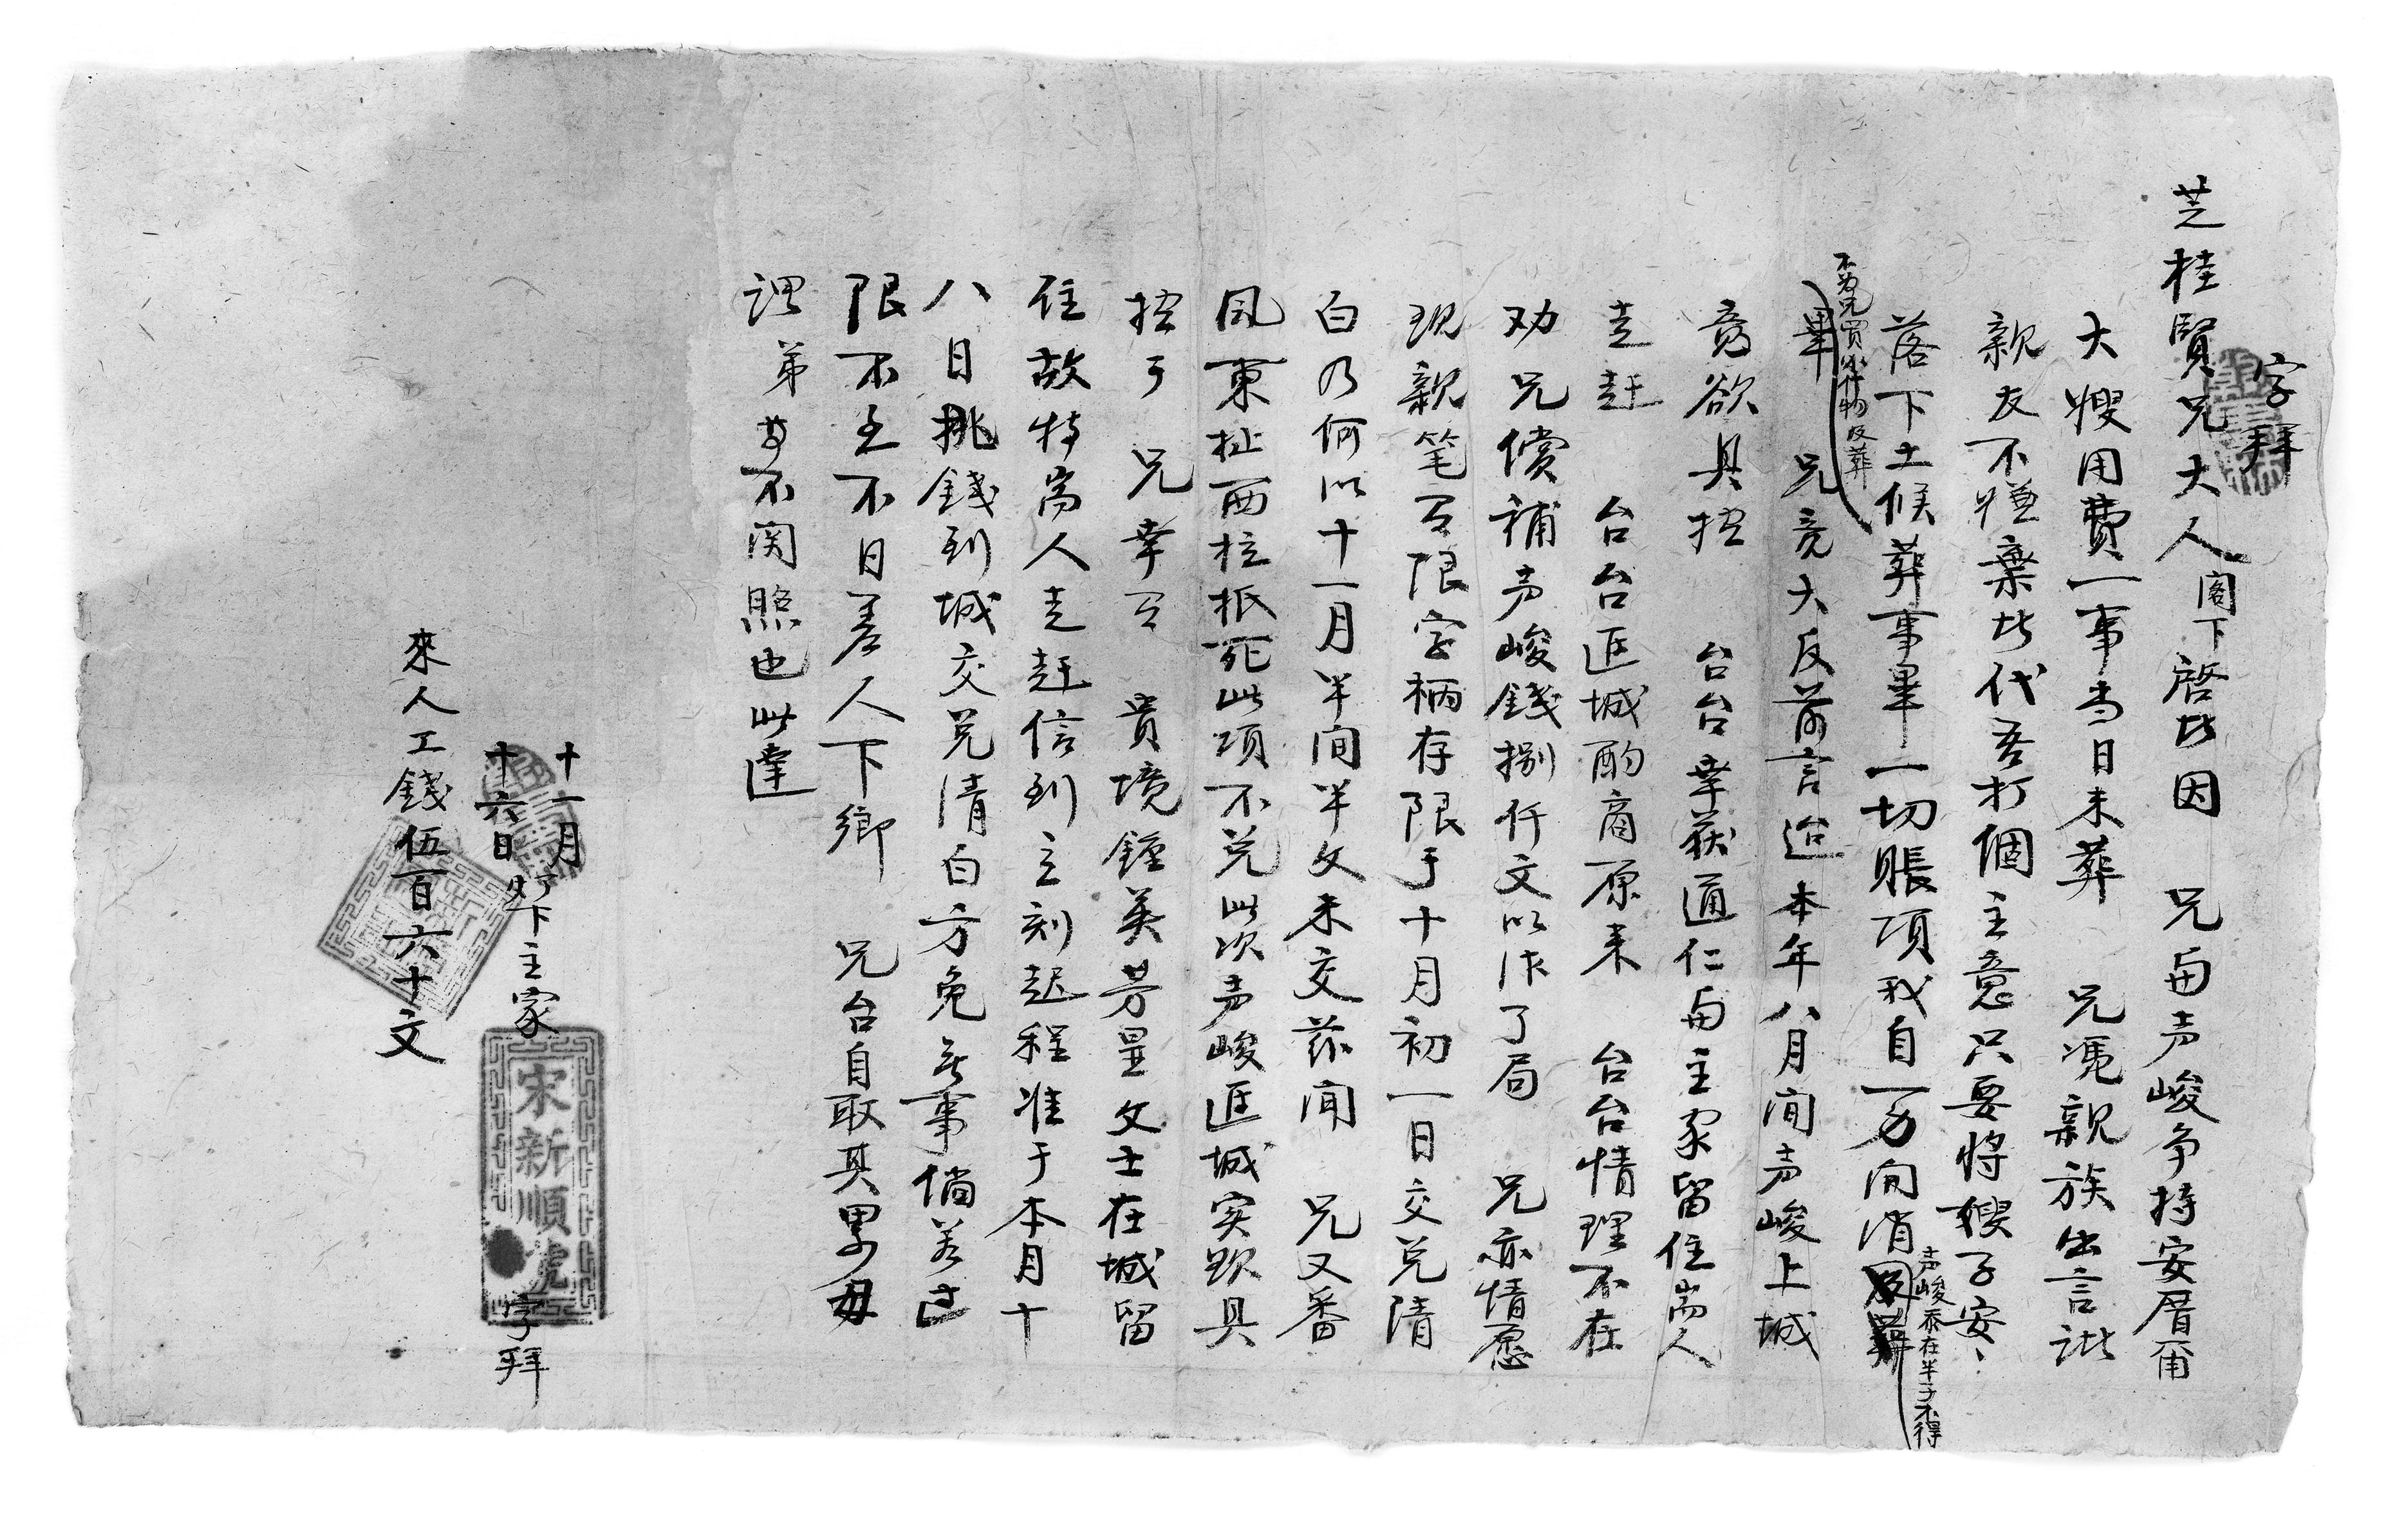 字拜
芝桂賢兄大人閣下啓此因 兄與声峻争持安厝甫
大嫂用費一事當日未葬 兄凴親族出言諧
親友不嫌棄此代吾打個主意只要將嫂子安、
落下土候葬事畢一切賬項我自一力開消
声峻忝在半子不得
不为兄買物什物及葬
畢 兄竟大反前言迨本年八月间声峻上城
竟欲具控 台台幸获通仁與主家留住耑人
走赶 台台匹城酌商原来 台台情理不在
劝兄償補声峻錢捌仟文以作了局 兄亦情愿
現親笔立限字柄存限于十月初一日交兑清
白乃何以十一月半间半文未交茲闻 兄又番
風東扯西拉抵死此項不兑此次声峻匹城实欲具
控于 兄幸立 貴境鍾英芳呈文士在城留
住故特耑人走赶信到立刻起程准于本月十
八日挑錢到城交兑清白方免無事倘若过
限不至不日差人下鄉 兄台自取其累毋
謂弟等不関照也此達
十一月
十六日 灯下主家
宋新順號
字拜
來人工錢伍百六十文